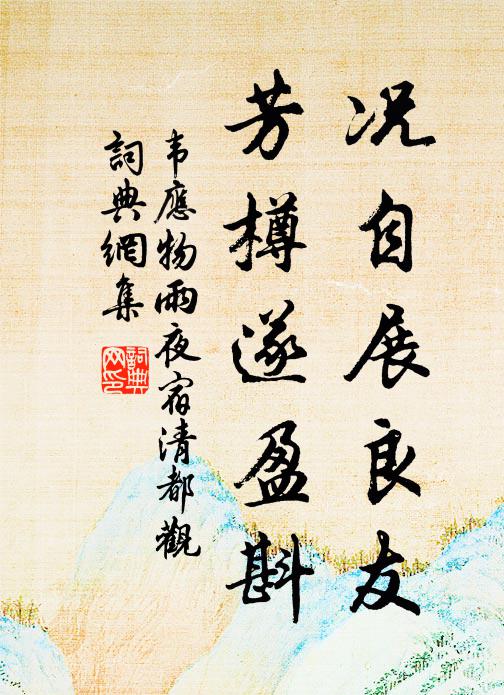 况自展良友
芳樽遂盈斟
韦應物雨夜宿清都觀
詞典網集
詞典網印